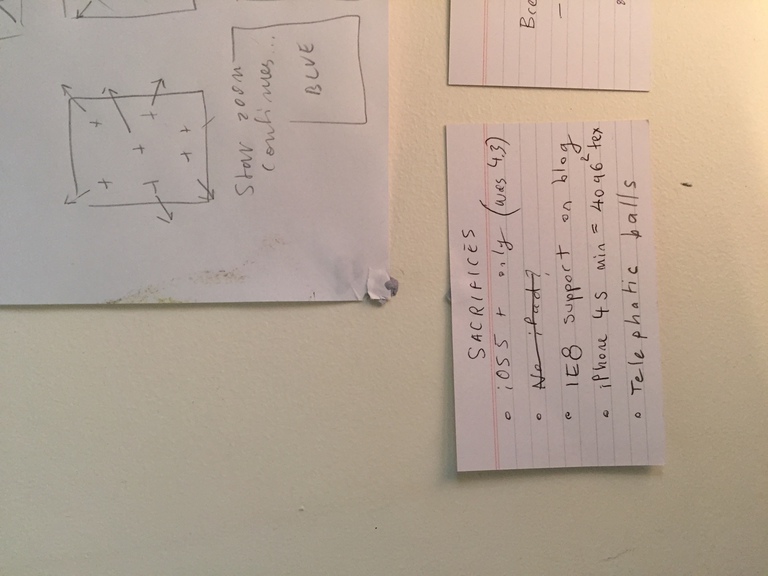 Star zoom
continues...
BLUE
SACRIFICES
iOS 5 + only (was 4.3)
No iPad?
IE8 support on blog
iPhone 4S min = 4096² tex
Telephatic balls